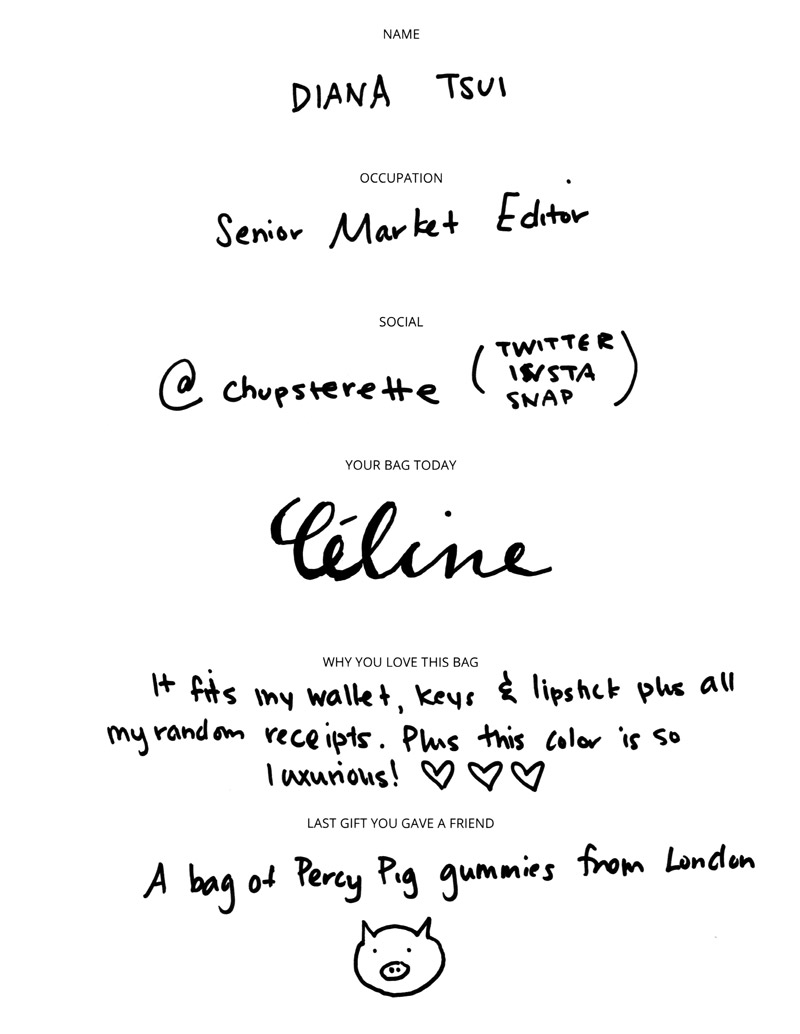 NAME
DIANA TSUI
OCCUPATION
Senior Market Editor
SOCIAL
@chupsterette (TWITTER
INSTA
SNAP)
YOUR BAG TODAY
Céline
WHY YOU LOVE THIS BAG
It fits my wallet, keys & lipstick plus all
my random receipts. Plus this color is so
luxurious! ♡ ♡ ♡
LAST GIFT YOU GAVE A FRIEND
A bag of Percy Pig gummies from London